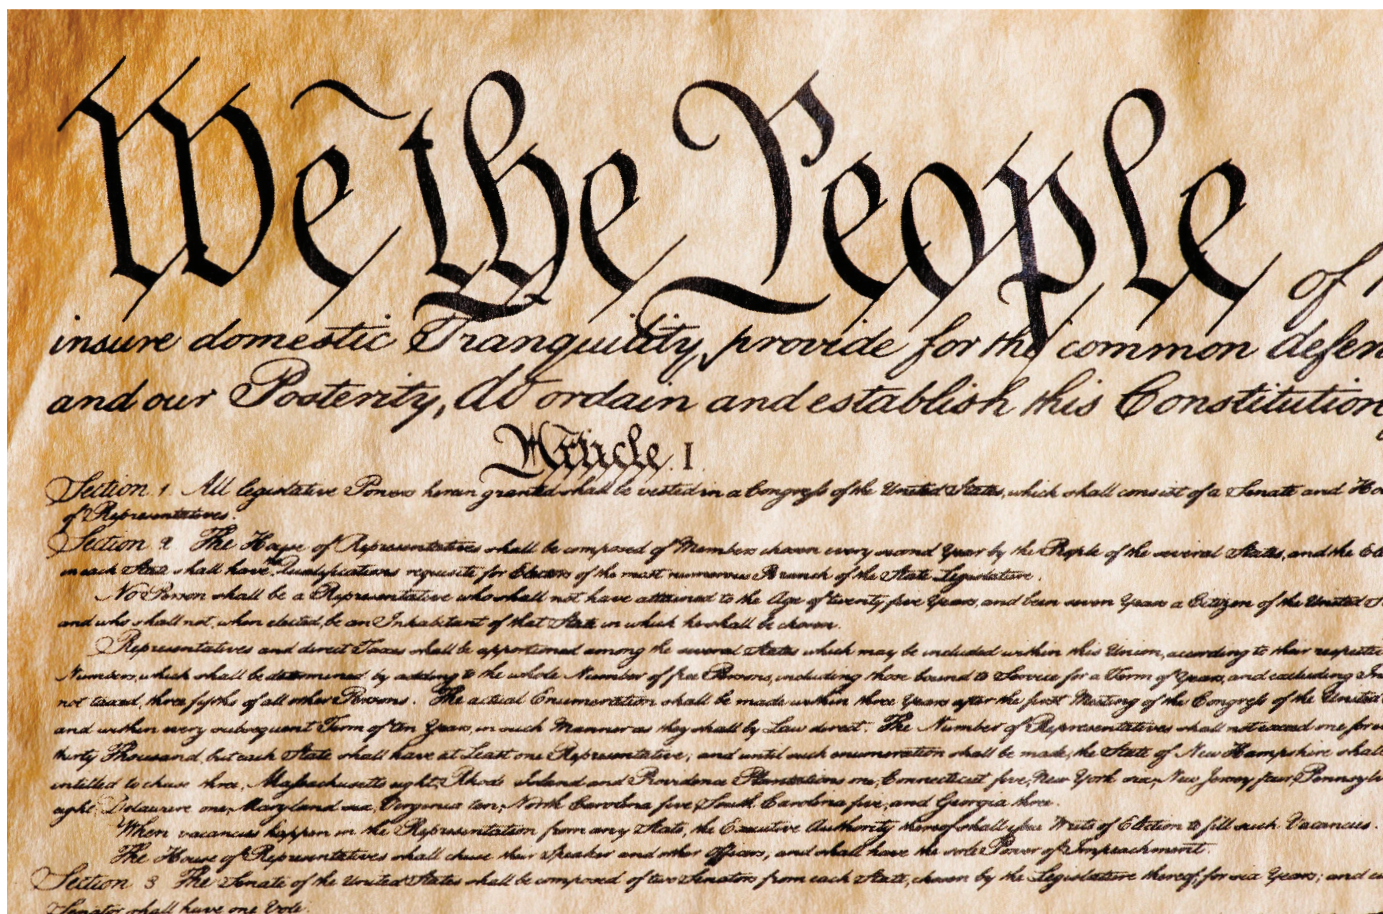 We the People of
insure domestic Tranquility, provide for the common defen
and our Posterity, do ordain and establish this Constitution
Article I
Section 1 All legislative Powers herein granted shall be vested in a Congress of the United States, which shall consist of a Senate and Ho
of Representatives.
Section 2 The House of Representatives shall be composed of Members chosen every second Year by the People of the several States, and the Ele
in each State shall have the Qualifications requisite for Electors of the most numerous Branch of the State Legislature.
No Person shall be a Representative who shall not have attained to the Age of twenty five Years, and been seven Years a Citizen of the United St
and who shall not, when elected, be an Inhabitant of that State in which he shall be chosen.
Representatives and direct Taxes shall be apportioned among the several States which may be included within this Union, according to their respectiv
Numbers, which shall be determined by adding to the whole Number of free Persons, including those bound to Service for a Term of Years, and excluding In
not taxed, three fifths of all other Persons. The actual Enumeration shall be made within three Years after the first Meeting of the Congress of the United
and within every subsequent Term of ten Years, in such Manner as they shall by Law direct. The Number of Representatives shall not exceed one for ev
thirty Thousand, but each State shall have at Least one Representative; and until such enumeration shall be made, the State of New Hampshire shall
entitled to chuse three, Massachusetts eight, Rhode Island and Providence Plantations one, Connecticut five, New York six, New Jersey four, Pennsylv
eight, Delaware one, Maryland six, Virginia ten, North Carolina five, South Carolina five, and Georgia three.
When vacancies happen in the Representation from any State, the Executive Authority thereof shall issue Writs of Election to fill such Vacancies.
The House of Representatives shall chuse their Speaker and other Officers; and shall have the sole Power of Impeachment.
Section 3 The Senate of the United States shall be composed of two Senators from each State, chosen by the Legislature thereof, for six Years; and
Senator shall have one Vote.